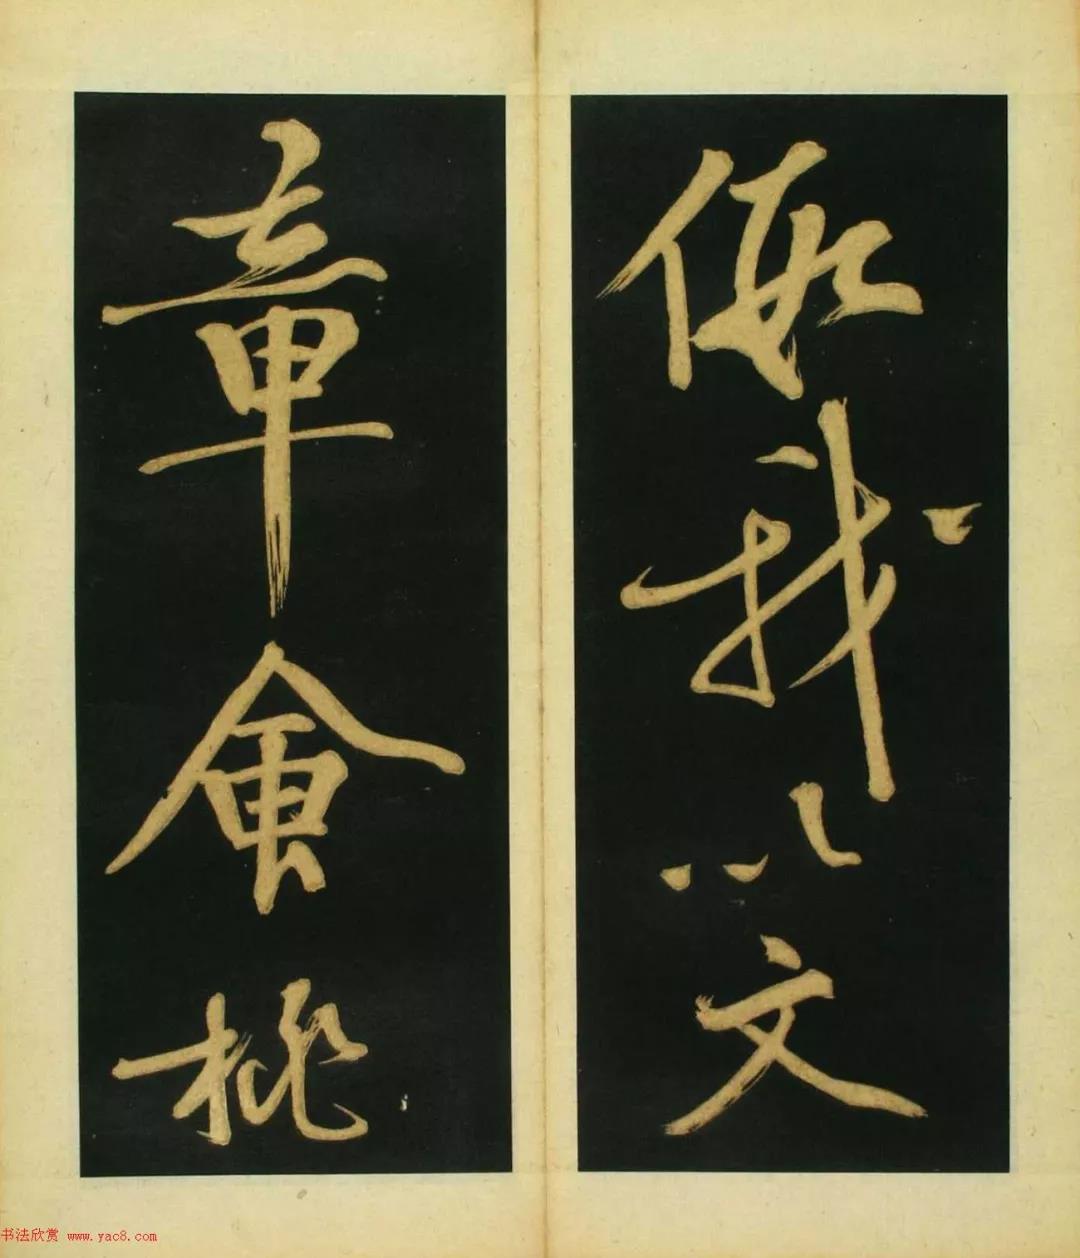 假我以文
章會桃
书法欣赏 www.yac8.com